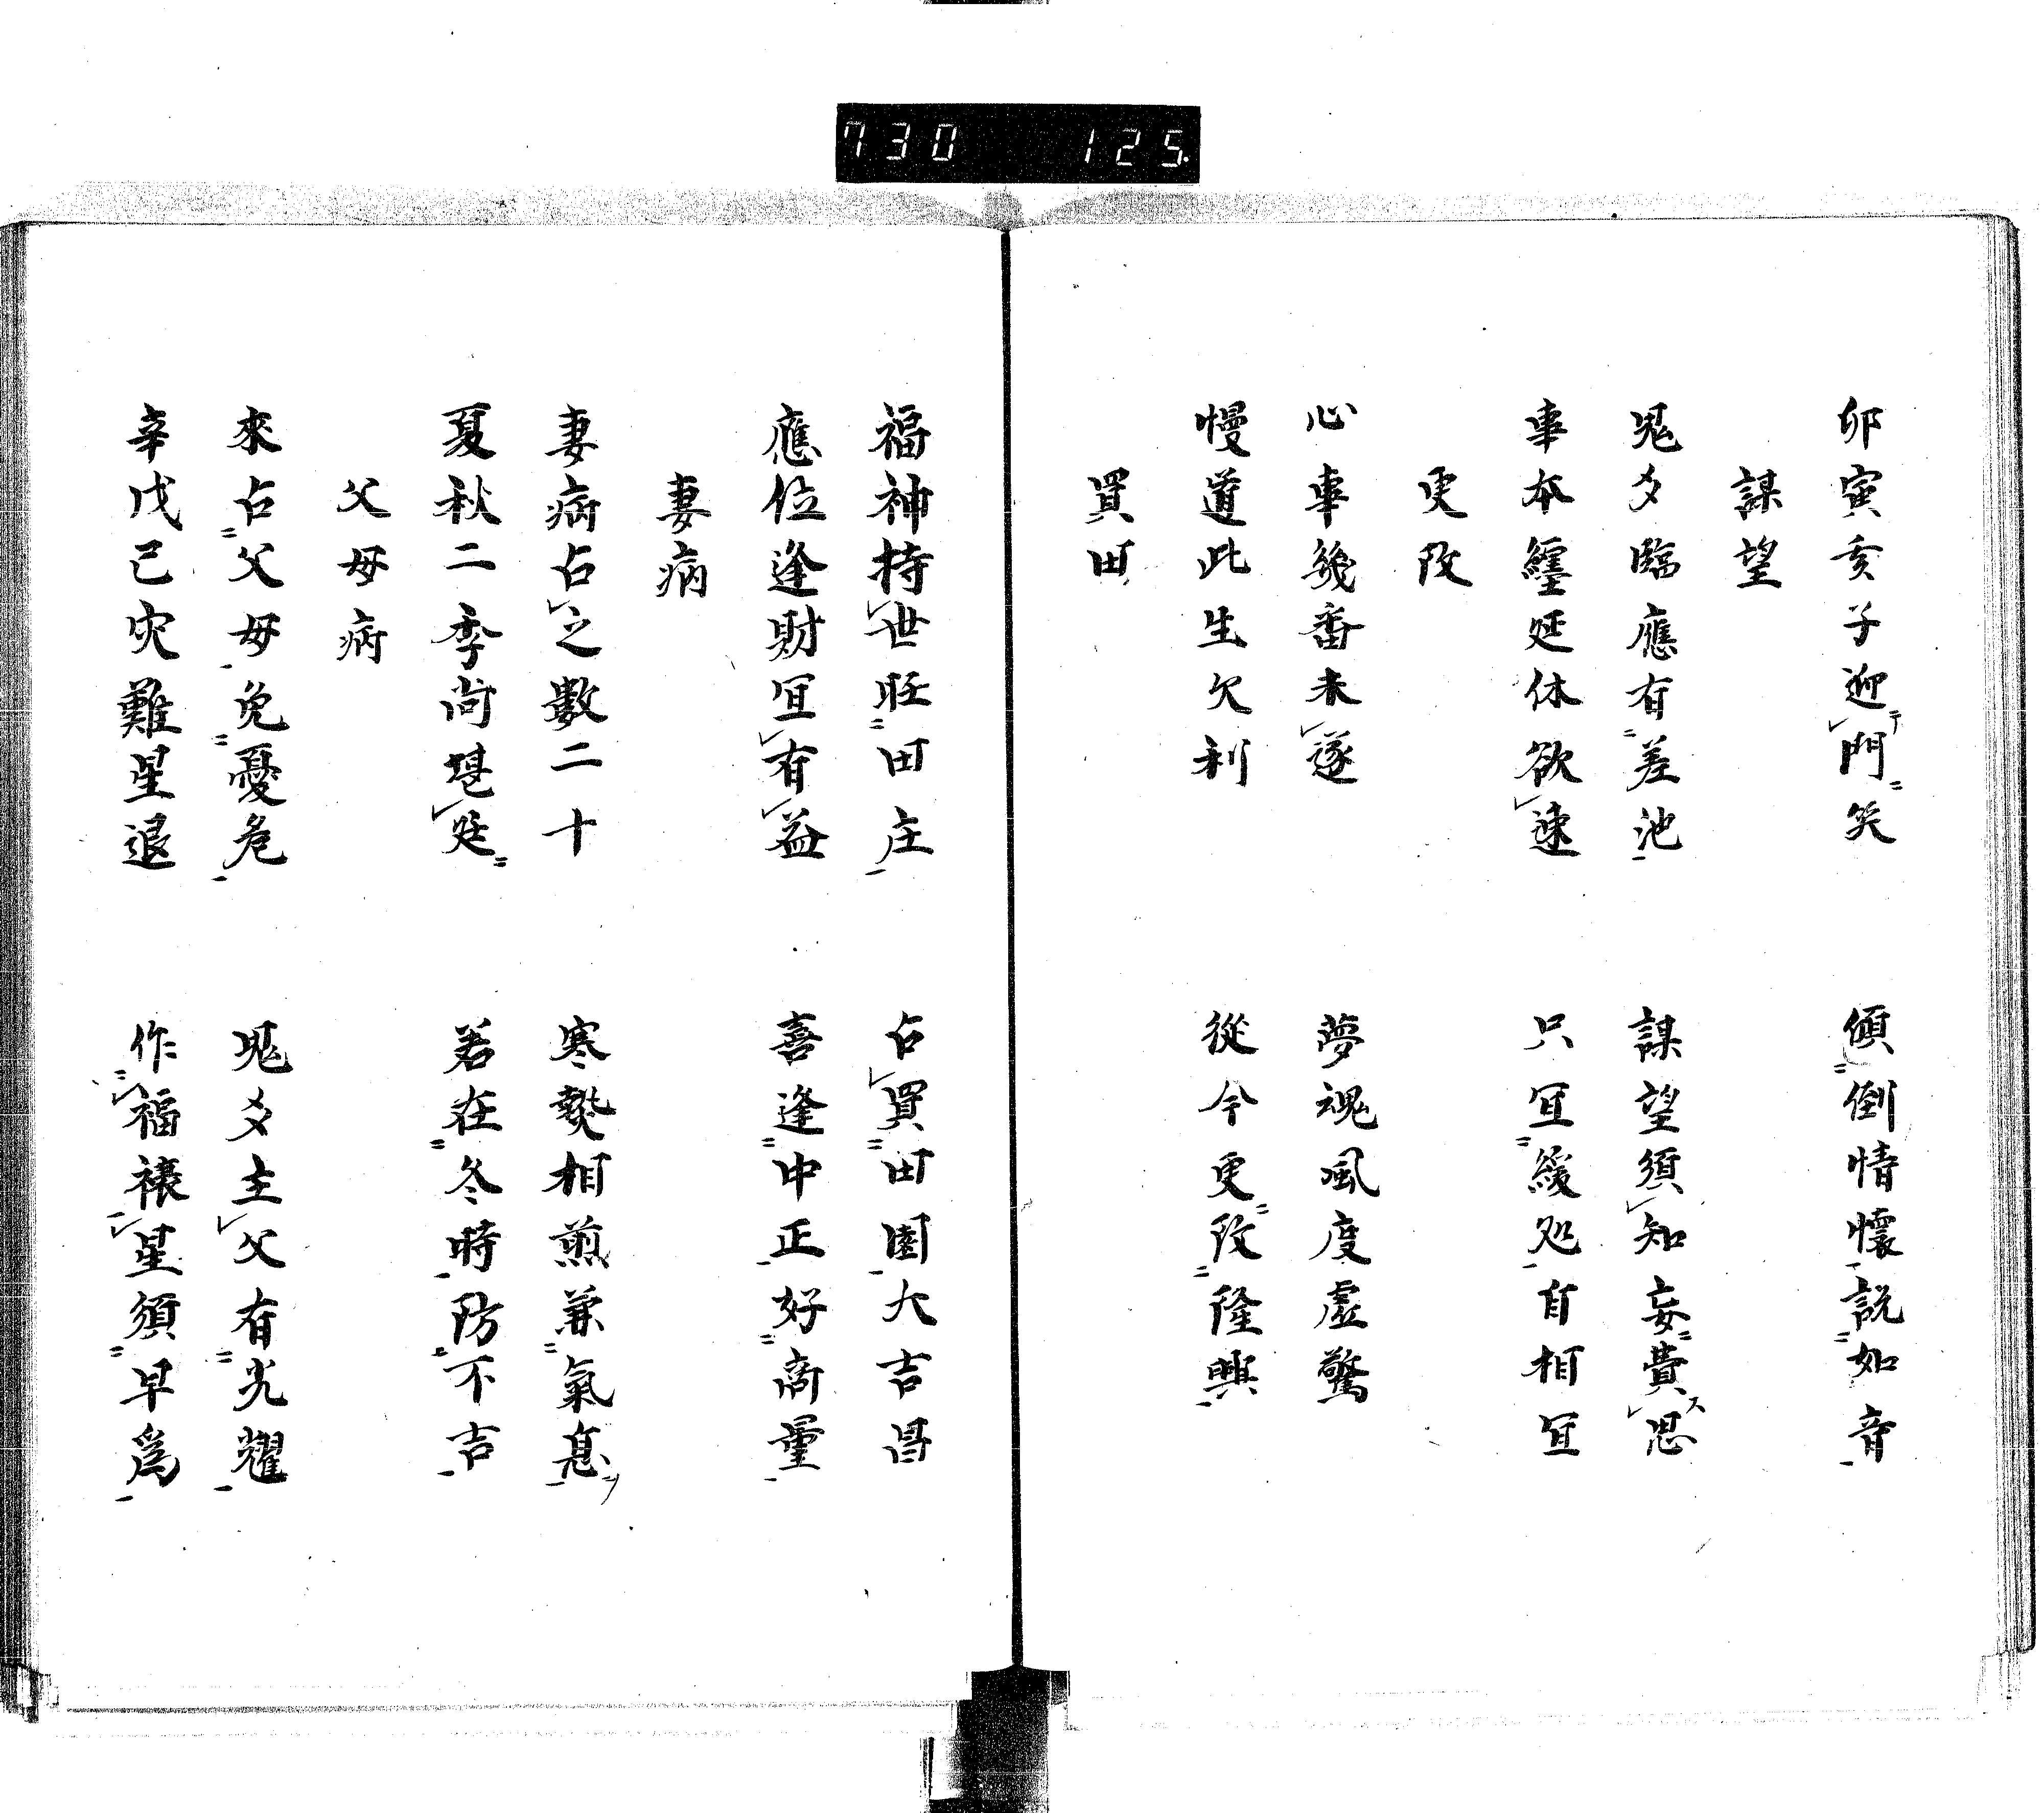 730 125
卯寅亥子迎門笑 傾倒情懷説如音
謀望
鬼爻臨應有差池 謀望須知妄費思
事本纏延休欲速 只宜緩処自相宜
更改
心事幾番未遂 夢魂風度虛驚
慢道此生欠利 從今更改隆興
買田
福神持世旺田庄 占買田園大吉昌
應位逢財宜有益 喜逢中正好商量
妻病
妻病占之數二十 寒熱相煎兼氣息
夏秋二季尚堪延 若在冬時防不吉
父母病
來占父母免憂危 鬼爻主父有光耀
辛戊己灾難星退 作福禳星須早爲